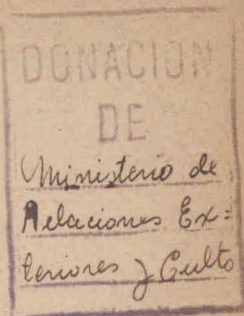 DONACION
DE
Ministerio de
Relaciones Ex=
teriores y Culto